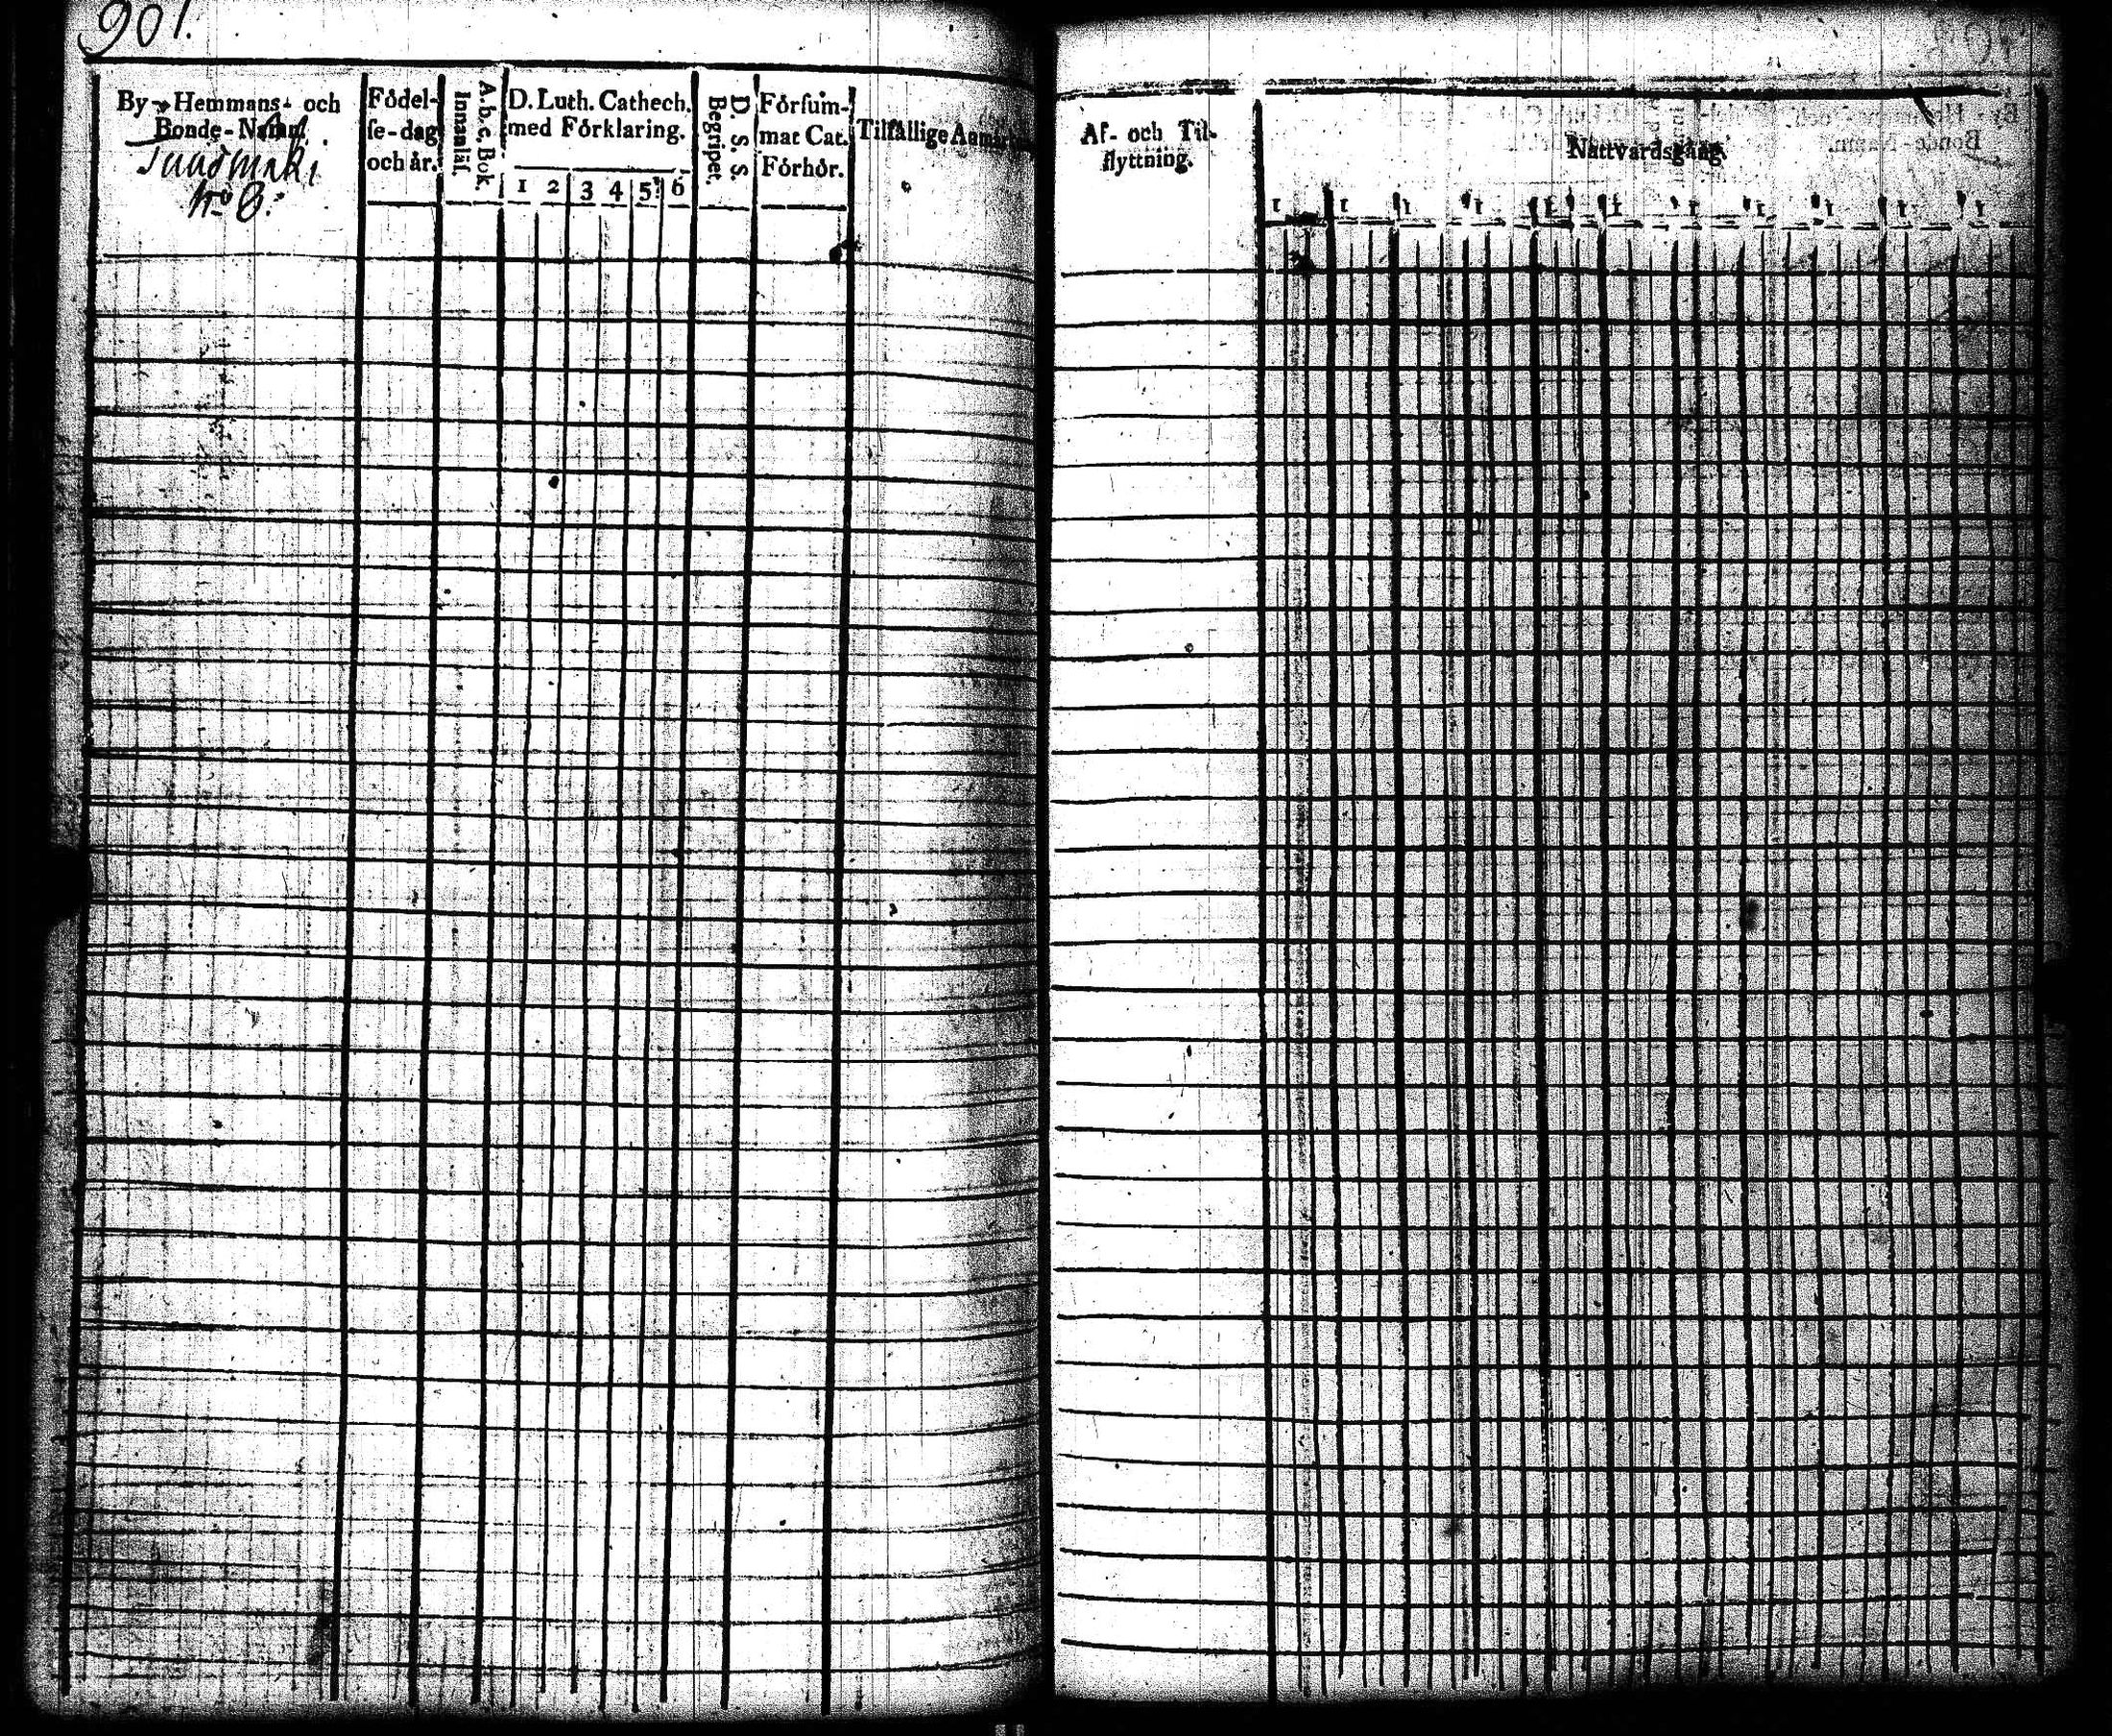 901.
By- Hemmans- och
Bonde-Namn.
No 8.
Födel-
se-dag
och år.
A. b. c. Bok.
Innanläs.
D. Luth. Cathech.
med Förklaring.
1 2 3 4 5 6
D. S. S.
Begripet.
Försum-
mat Cat.
Förhör.
Tilfällige
Af- och Til-
flyttning.
Nattvardsgång.
1 1 1 1 1 1 1 1 1 1 1